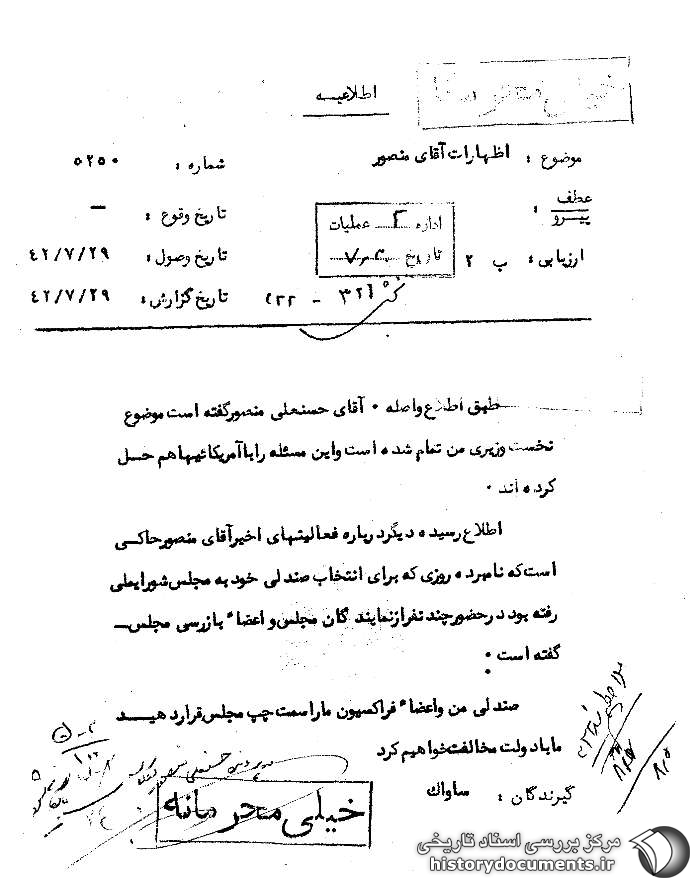 خیلی محرمانه
اطلاعیه
موضوع : اظهارات آقای منصور
شماره : ۵۲۵۰
عطف
پیرو :
تاریخ وقوع : —
اداره ۲ عملیات
تاریخ
ارزیابی : ب ۲
تاریخ وصول : ۴۲/۷/۲۹
تاریخ گزارش : ۴۲/۷/۲۹
۳۲۱ - ۴۲۲
طبق اطلاع واصله ۰ آقای حسنعلی منصور گفته است موضوع
نخست وزیری من تمام شده است واین مسئله را با آمریکائیها هم حل
کرده اند ۰
اطلاع رسیده دیگر درباره فعالیتهای اخیر آقای منصور حاکی
است که نامبرده روزی که برای انتخاب صندلی خود به مجلس شورایملی
رفته بود در حضور چند نفر از نمایندگان مجلس و اعضاء بازرسی مجلس
گفته است :
صندلی من واعضاء فراکسیون ما راسمت چپ مجلس قرار دهید
ما با دولت مخالفت خواهیم کرد
گیرندگان : ساواک
خیلی محرمانه
مرکز بررسی اسناد تاریخی
historydocuments.ir